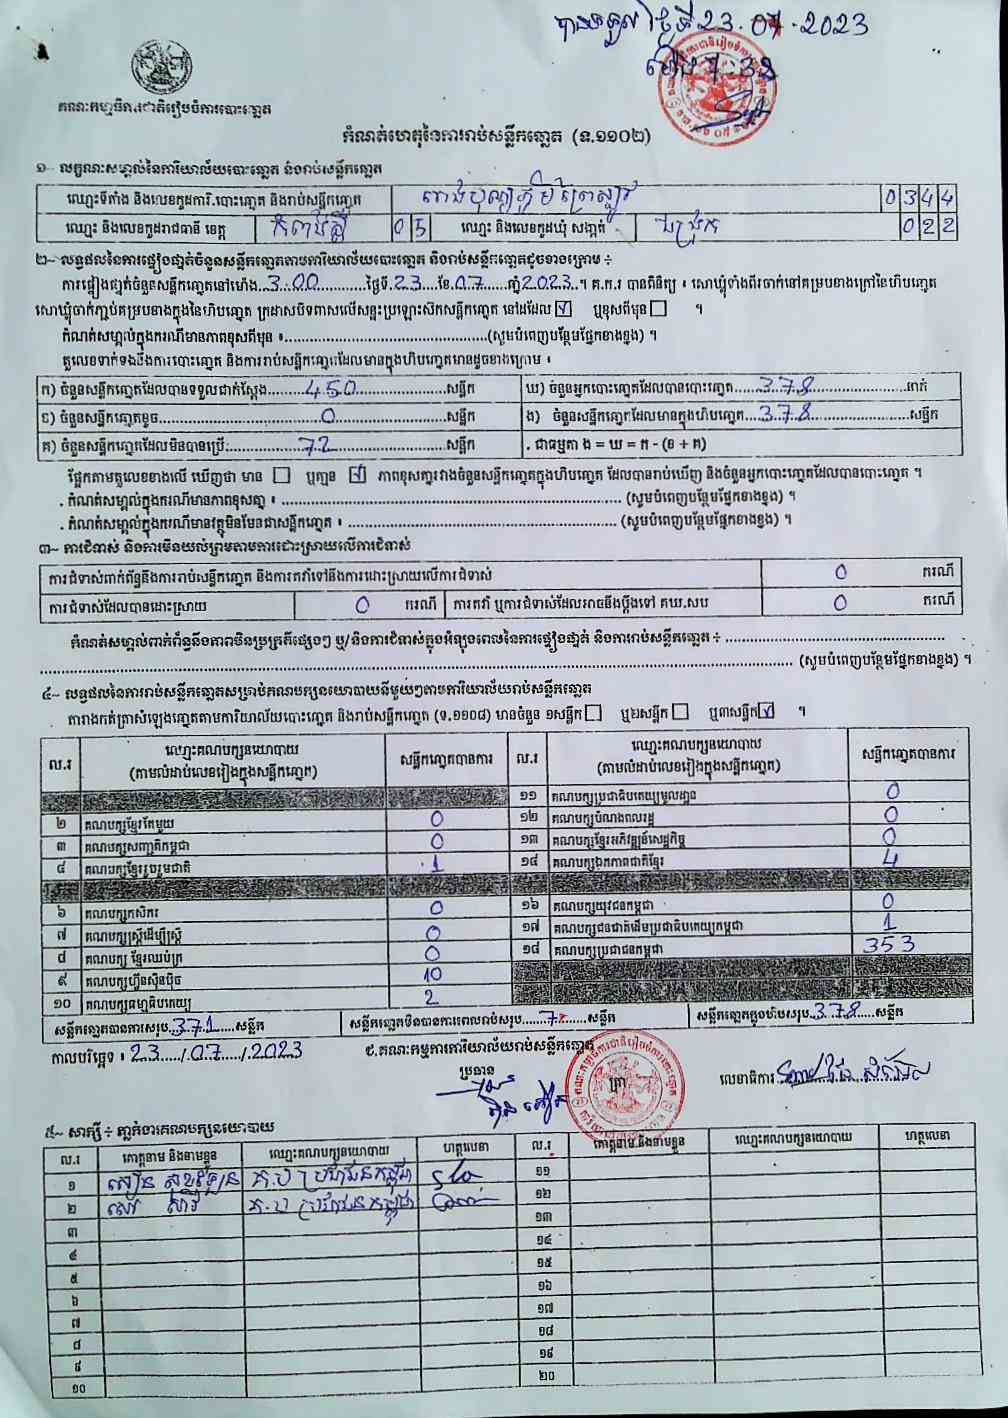 បានទទួល ថ្ងៃទី 23.07.2023
ម៉ោង 7:30
គណៈកម្មាធិការជាតិរៀបចំការបោះឆ្នោត
កំណត់ហេតុនៃការរាប់សន្លឹកឆ្នោត (ទ.១១០២)
១~ លក្ខណៈសម្គាល់នៃការិយាល័យបោះឆ្នោត និងរាប់សន្លឹកឆ្នោត
ឈ្មោះទីតាំង និងលេខកូដការិ.បោះឆ្នោត និងរាប់សន្លឹកឆ្នោត 0344
ឈ្មោះ និងលេខកូដរាជធានី ខេត្ត កំពង់ស្ពឺ 05 ឈ្មោះ និងលេខកូដឃុំ សង្កាត់ 022
២~ លទ្ធផលនៃការផ្ទៀងផ្ទាត់ចំនួនសន្លឹកឆ្នោតតាមការិយាល័យបោះឆ្នោត និងរាប់សន្លឹកដូចខាងក្រោម ÷
ការផ្ទៀងផ្ទាត់ចំនួនសន្លឹកឆ្នោតនៅម៉ោង...3:00...ថ្ងៃទី.23...ខែ.07...ឆ្នាំ2023..។ គ.ក.រ បានពិនិត្យ ៖ សោឃ្លុំទាំងពីរចាក់នៅគម្របខាងក្រៅនៃហិបឆ្នោត
សោឃ្លុំចាក់ភ្ជាប់គម្របខាងក្នុងនៃហិបឆ្នោត ក្រដាសបិទពាសលើសន្ទះប្រឡោះស៊កសន្លឹកឆ្នោត នៅដដែល ☑ ឬខុសពីមុន ☐ ។
កំណត់សម្គាល់ក្នុងករណីមានភាពខុសពីមុន ៖ ...(សូមបំពេញបន្ថែមផ្នែកខាងខ្នង) ។
តួលេខទាក់ទងនឹងការបោះឆ្នោត និងការរាប់សន្លឹកឆ្នោតដែលមានក្នុងហិបឆ្នោតមានដូចខាងក្រោម ៖
ក) ចំនួនសន្លឹកឆ្នោតដែលបានទទួលជាក់ស្តែង...450...សន្លឹក ឃ) ចំនួនអ្នកបោះឆ្នោតដែលបានបោះឆ្នោត...378...នាក់
ខ) ចំនួនសន្លឹកឆ្នោតខូច...0...សន្លឹក ង) ចំនួនសន្លឹកឆ្នោតដែលមានក្នុងហិបឆ្នោត...378...សន្លឹក
គ) ចំនួនសន្លឹកឆ្នោតដែលមិនបានប្រើ:...72...សន្លឹក . ជាធម្មតា ង = ឃ = ក - (ខ + គ)
ផ្អែកតាមតួលេខខាងលើ ឃើញថា មាន ☐ ឬគ្មាន ☑ ភាពខុសគ្នារវាងចំនួនសន្លឹកឆ្នោតក្នុងហិបឆ្នោត ដែលបានរាប់ឃើញ និងចំនួនអ្នកបោះឆ្នោតដែលបានបោះឆ្នោត ។
. កំណត់សម្គាល់ក្នុងករណីមានភាពខុសគ្នា ៖ ... (សូមបំពេញបន្ថែមផ្នែកខាងខ្នង) ។
. កំណត់សម្គាល់ក្នុងករណីមានវត្ថុមិនមែនជាសន្លឹកឆ្នោត ៖ ... (សូមបំពេញបន្ថែមផ្នែកខាងខ្នង) ។
៣~ ការជំទាស់ និងការមិនយល់ព្រមតាមការដោះស្រាយលើការជំទាស់
ការជំទាស់ពាក់ព័ន្ធនឹងការរាប់សន្លឹកឆ្នោត និងការតវ៉ាទៅនឹងការដោះស្រាយលើការជំទាស់ 0 ករណី
ការជំទាស់ដែលបានដោះស្រាយ 0 ករណី ការតវ៉ា ឬការជំទាស់ដែលអាចនឹងប្តឹងទៅ គឃ.សប 0 ករណី
កំណត់សម្គាល់ពាក់ព័ន្ធនឹងភាពមិនប្រក្រតីផ្សេងៗ ឬ/និងការជំទាស់ក្នុងអំឡុងពេលនៃការផ្ទៀងផ្ទាត់ និងការរាប់សន្លឹកឆ្នោត ÷ ...
... (សូមបំពេញបន្ថែមផ្នែកខាងខ្នង) ។
៤~ លទ្ធផលនៃការរាប់សន្លឹកឆ្នោតសម្រាប់គណបក្សនយោបាយនីមួយៗតាមការិយាល័យរាប់សន្លឹកឆ្នោត
តារាងកត់ត្រាសំឡេងឆ្នោតតាមការិយាល័យបោះឆ្នោត និងរាប់សន្លឹកឆ្នោត (ទ.១១០៨) មានចំនួន ១សន្លឹក ☐ ឬ២សន្លឹក ☐ ឬ៣សន្លឹក ☑ ។
ល.រ ឈ្មោះគណបក្សនយោបាយ (តាមលំដាប់លេខរៀងក្នុងសន្លឹកឆ្នោត) សន្លឹកឆ្នោតបានការ ល.រ ឈ្មោះគណបក្សនយោបាយ (តាមលំដាប់លេខរៀងក្នុងសន្លឹកឆ្នោត) សន្លឹកឆ្នោតបានការ
១១ គណបក្សប្រជាធិបតេយ្យមូលដ្ឋាន 0
២ គណបក្សខ្មែរតែមួយ 0 ១២ គណបក្សបំណងពលរដ្ឋ 0
៣ គណបក្សសញ្ជាតិកម្ពុជា 0 ១៣ គណបក្សខ្មែរអភិវឌ្ឍន៍សេដ្ឋកិច្ច 0
៤ គណបក្សខ្មែររួបរួមជាតិ 1 ១៤ គណបក្សឯកភាពជាតិខ្មែរ 4
៦ គណបក្សកសិករ 0 ១៦ គណបក្សយុវជនកម្ពុជា 0
៧ គណបក្សស្ត្រីដើម្បីស្ត្រី 0 ១៧ គណបក្សជនជាតិដើមប្រជាធិបតេយ្យកម្ពុជា 1
៨ គណបក្ស ខ្មែរឈប់ក្រ 0 ១៨ គណបក្សប្រជាជនកម្ពុជា 353
៩ គណបក្សហ៊្វុនស៊ិនប៉ិច 10
១០ គណបក្សធម្មាធិបតេយ្យ 2
សន្លឹកឆ្នោតបានការសរុប.371....សន្លឹក សន្លឹកឆ្នោតមិនបានការពេលរាប់សរុប....7....សន្លឹក សន្លឹកឆ្នោតក្នុងហិបសរុប.378...សន្លឹក
កាលបរិច្ឆេទ ៖ 23/07/2023 ជ.គណៈកម្មការការិយាល័យរាប់សន្លឹកឆ្នោត
ប្រធាន ត្រា លេខាធិការ
៥~ សាក្សី ÷ ភ្នាក់ងារគណបក្សនយោបាយ
ល.រ គោត្តនាម និងនាមខ្លួន ឈ្មោះគណបក្សនយោបាយ ហត្ថលេខា ល.រ គោត្តនាម និងនាមខ្លួន ឈ្មោះគណបក្សនយោបាយ ហត្ថលេខា
១ គ.ប ប្រជាជនកម្ពុជា ១១
២ សៅ សារី គ.ប ប្រជាជនកម្ពុជា ១២
៣ ១៣
៤ ១៤
៥ ១៥
៦ ១៦
៧ ១៧
៨ ១៨
៩ ១៩
១០ ២០